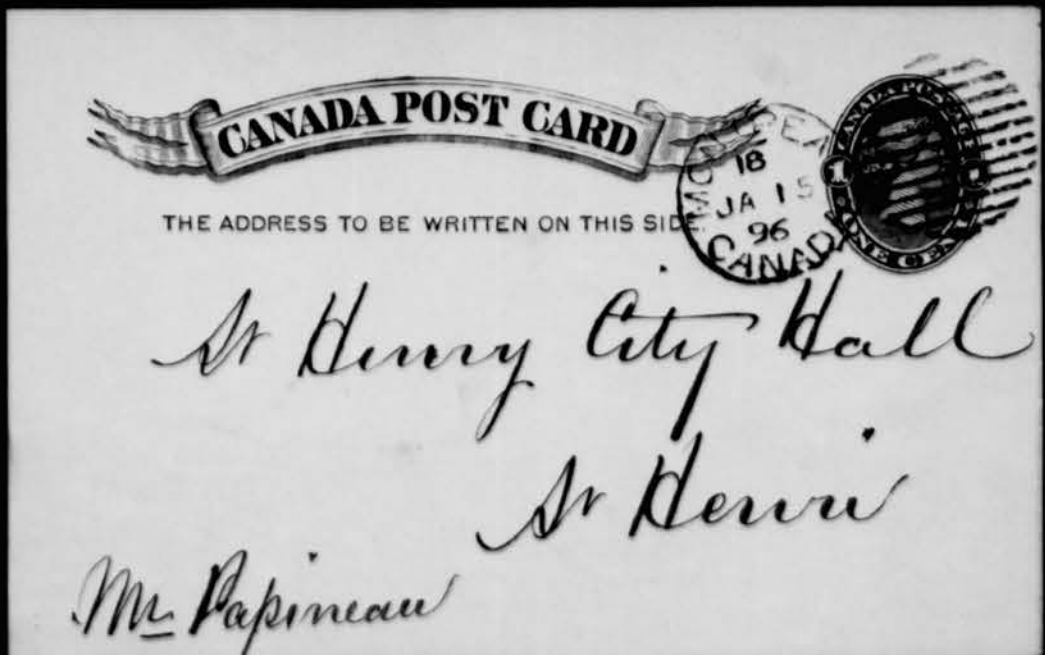 CANADA POST CARD
THE ADDRESS TO BE WRITTEN ON THIS SIDE.
MONTREAL
18
JA 15
96
CANADA
CANADA POSTAGE
1
ONE CENT
St Henry City Hall
St Henri
Mr Papineau